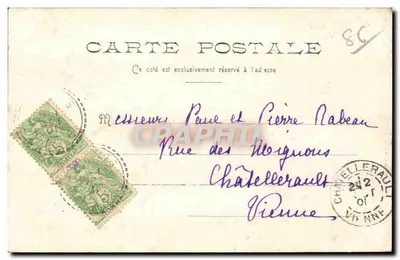 8€
CARTE POSTALE
Ce côté est exclusivement réservé à l'adresse
Messieurs Paul et Pierre Rabeau
Rue des Mignons
Châtellerault
Vienne
CHATELLERAULT
VIENNE